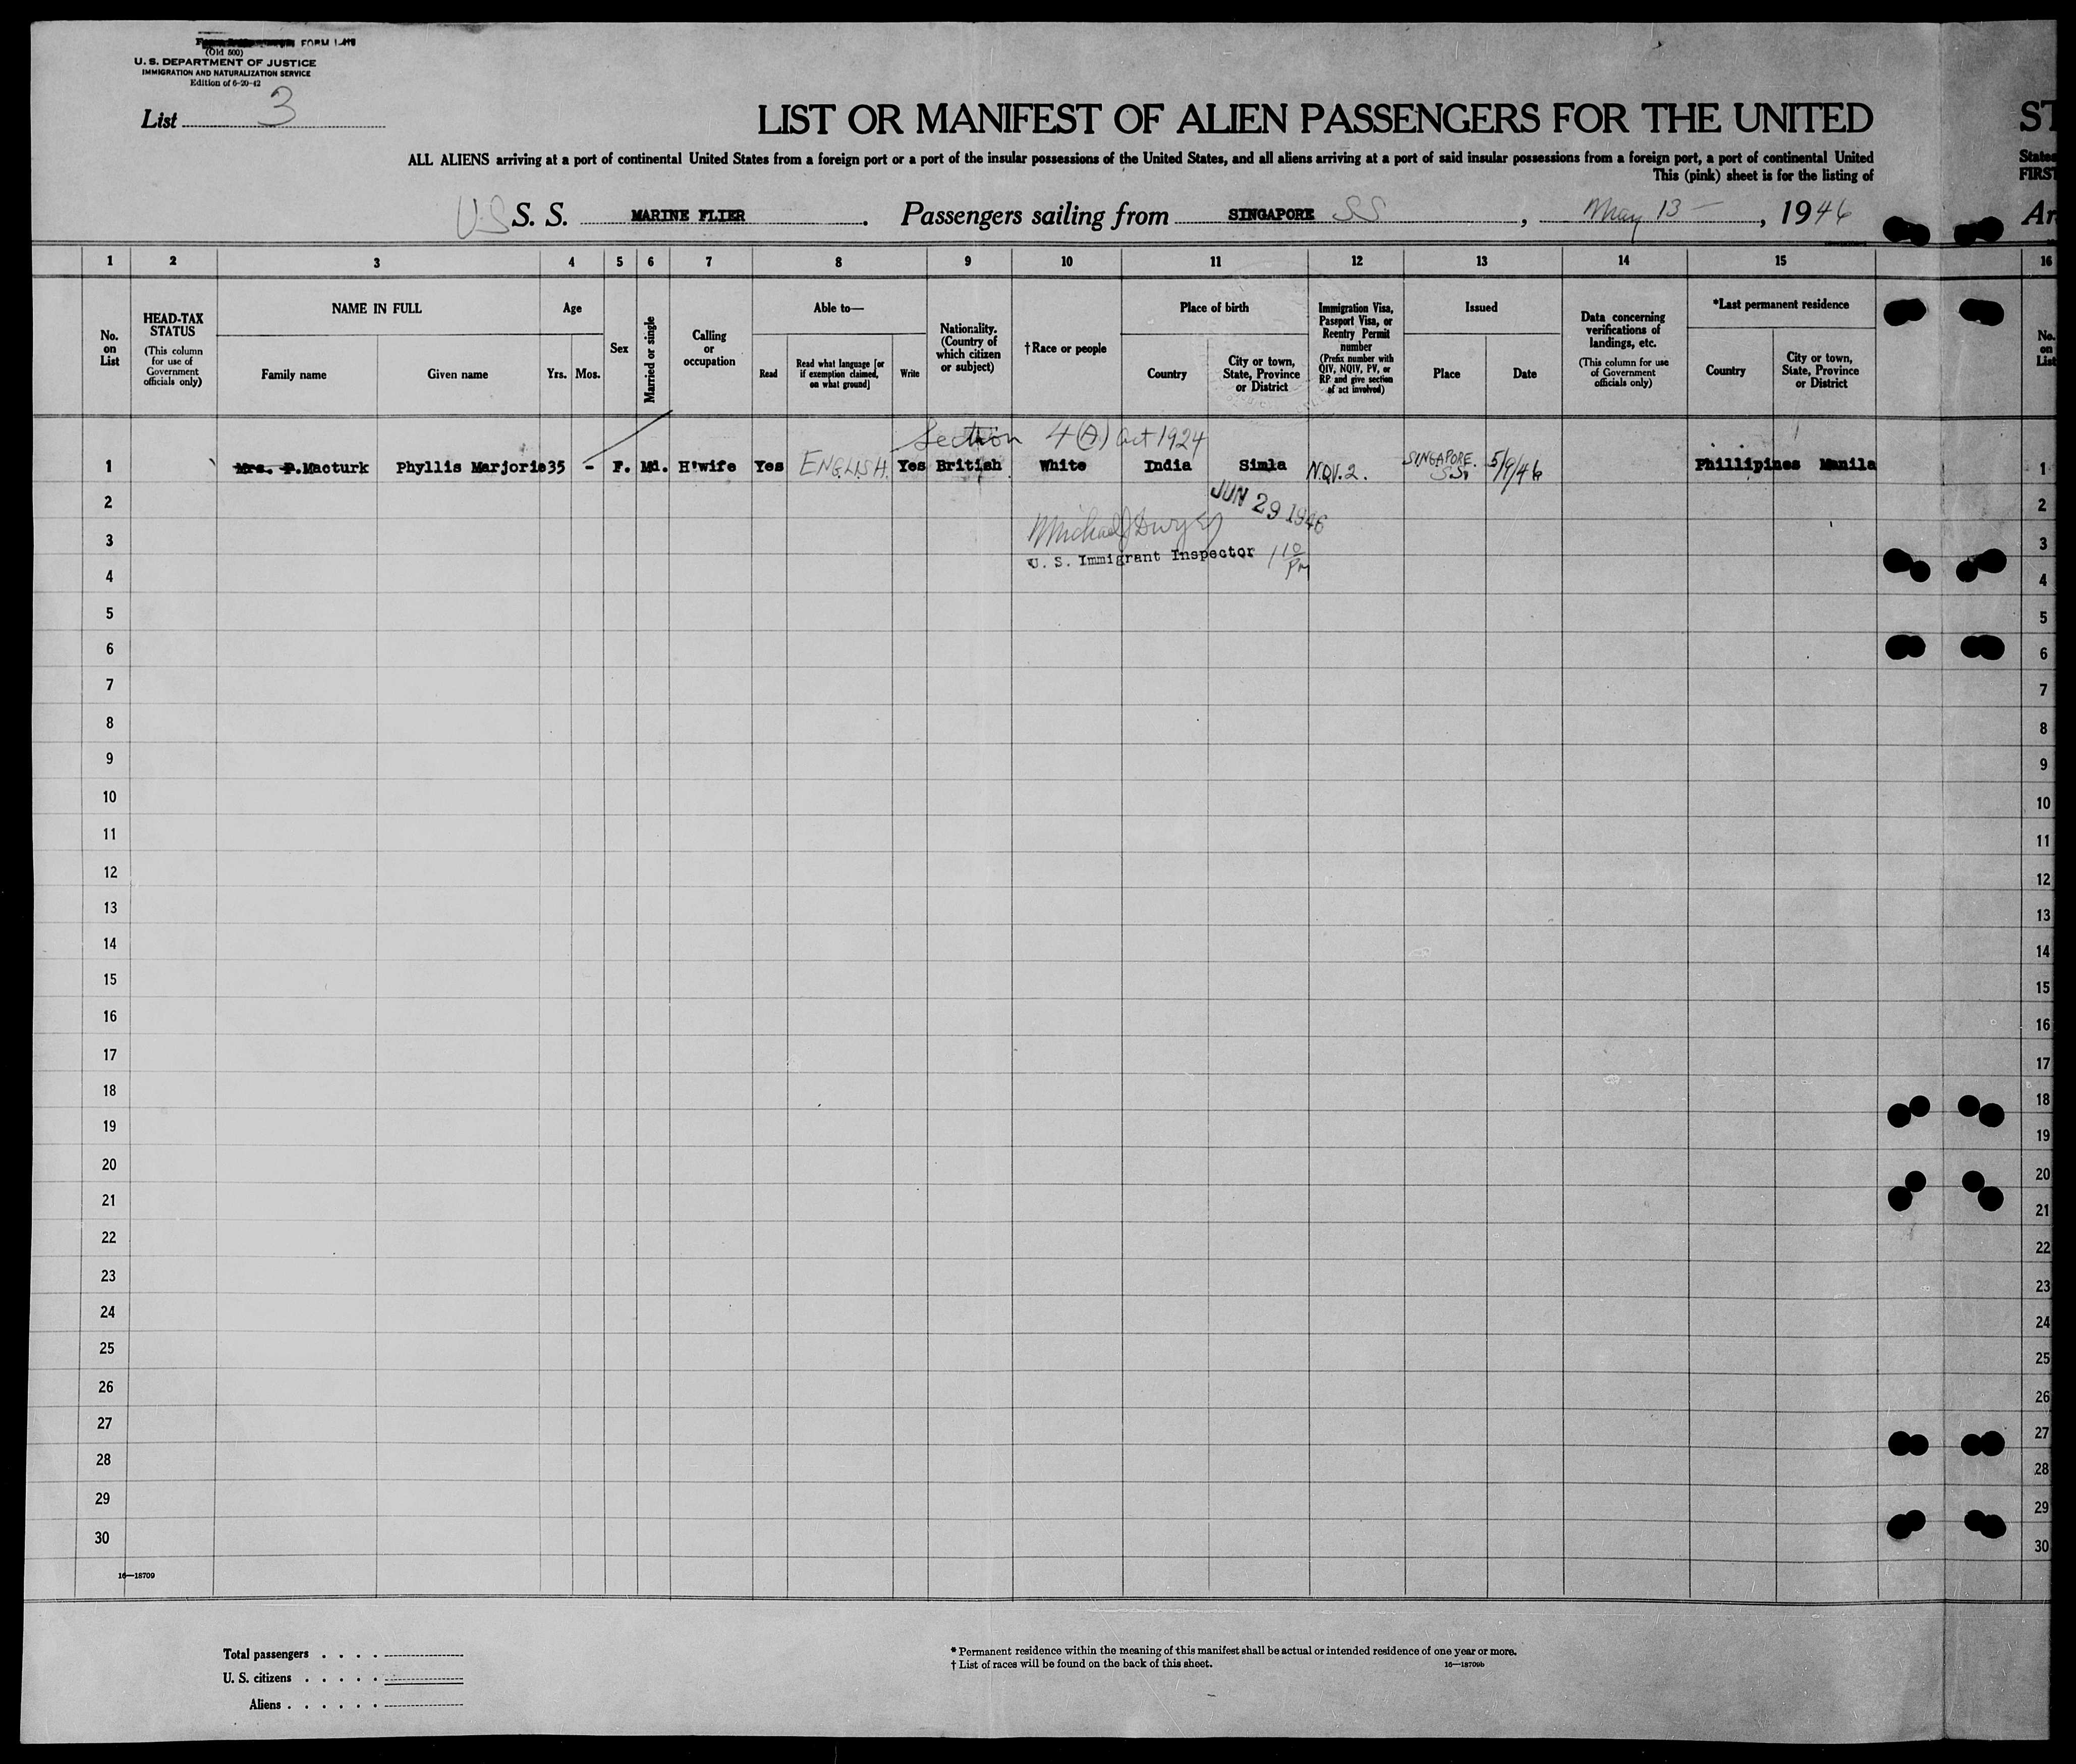 FORM I-418
(Old 500)
U. S. DEPARTMENT OF JUSTICE
IMMIGRATION AND NATURALIZATION SERVICE
Edition of 6-20-42
List 3
LIST OR MANIFEST OF ALIEN PASSENGERS FOR THE UNITED ST
ALL ALIENS arriving at a port of continental United States from a foreign port or a port of the insular possessions of the United States, and all aliens arriving at a port of said insular possessions from a foreign port, a port of continental United States
This (pink) sheet is for the listing of FIRST
US S. S. MARINE FLIER. Passengers sailing from SINGAPORE SS, May 13 -, 1946 Ar
1 2 3 4 5 6 7 8 9 10 11 12 13 14 15 16
No. on List
HEAD-TAX STATUS
(This column for use of Government officials only)
NAME IN FULL
Family name
Given name
Age
Yrs. Mos.
Sex
Married or single
Calling or occupation
Able to—
Read
Read what language [or if exemption claimed, on what ground]
Write
Nationality. (Country of which citizen or subject)
†Race or people
Place of birth
Country
City or town, State, Province or District
Immigration Visa, Passport Visa, or Reentry Permit number
(Prefix number with QIV, NQIV, PV, or RP and give section of act involved)
Issued
Place
Date
Data concerning verifications of landings, etc.
(This column for use of Government officials only)
*Last permanent residence
Country
City or town, State, Province or District
No. on List
Section 4(A) Act 1924
1 Mrs. P. Macturk Phyllis Marjorie 35 - F. Md. H'wife Yes ENGLISH. Yes British White India Simla N.QV.2. SINGAPORE. S.S. 5/9/46 Phillipines Manila 1
2 JUN 29 1946 2
3 Michael J Dwyer 3
U. S. Immigrant Inspector 1 10 Pm
4 4
5 5
6 6
7 7
8 8
9 9
10 10
11 11
12 12
13 13
14 14
15 15
16 16
17 17
18 18
19 19
20 20
21 21
22 22
23 23
24 24
25 25
26 26
27 27
28 28
29 29
30 30
16—18709
Total passengers . . . .
U. S. citizens . . . . .
Aliens . . . . . .
* Permanent residence within the meaning of this manifest shall be actual or intended residence of one year or more.
† List of races will be found on the back of this sheet. 16—18709b